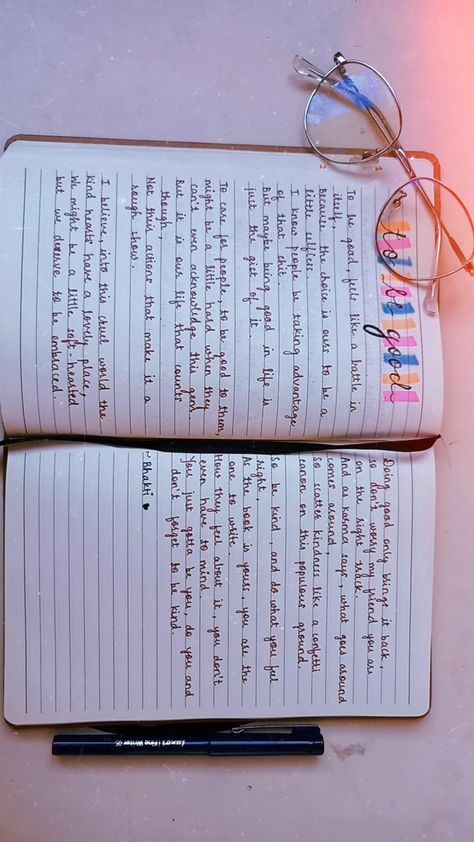 to be good
To be good, feels like a battle in
itself,
Because the choice is ours to be a
little selfless.
I know people be taking advantage
of that shit
But maybe being good in life is
just the gist of it.
To care for people, to be good to them,
might be a little hard when they
can't even acknowledge this gem.
But it is our life that counts
though,
Not their actions that make it a
rough show.
I believe, into this cruel world the
kind hearts have a lovely place,
We might be a little soft-hearted
but we deserve to be embraced.
Doing good only brings it back,
so don't worry my friend you are
on the right track.
And as karma says, what goes around
comes around,
So scatter kindness like a confetti
canon on this populous ground.
So be kind, and do what you feel
right,
As the book is yours, you are the
one to write.
How they feel about it, you don't
even have to mind.
You just gotta be you, do you and
don't forget to be kind.
~Bhakti ♥
Luxor | Fine Writer 05